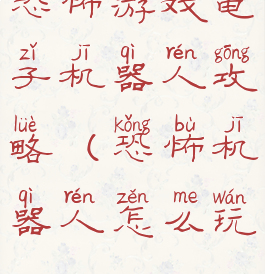 恐怖游戏电
zǐ jī qì rén gōng
子机器人攻
lüè kǒng bù jī
略（恐怖机
qì rén zěn me wán
器人怎么玩